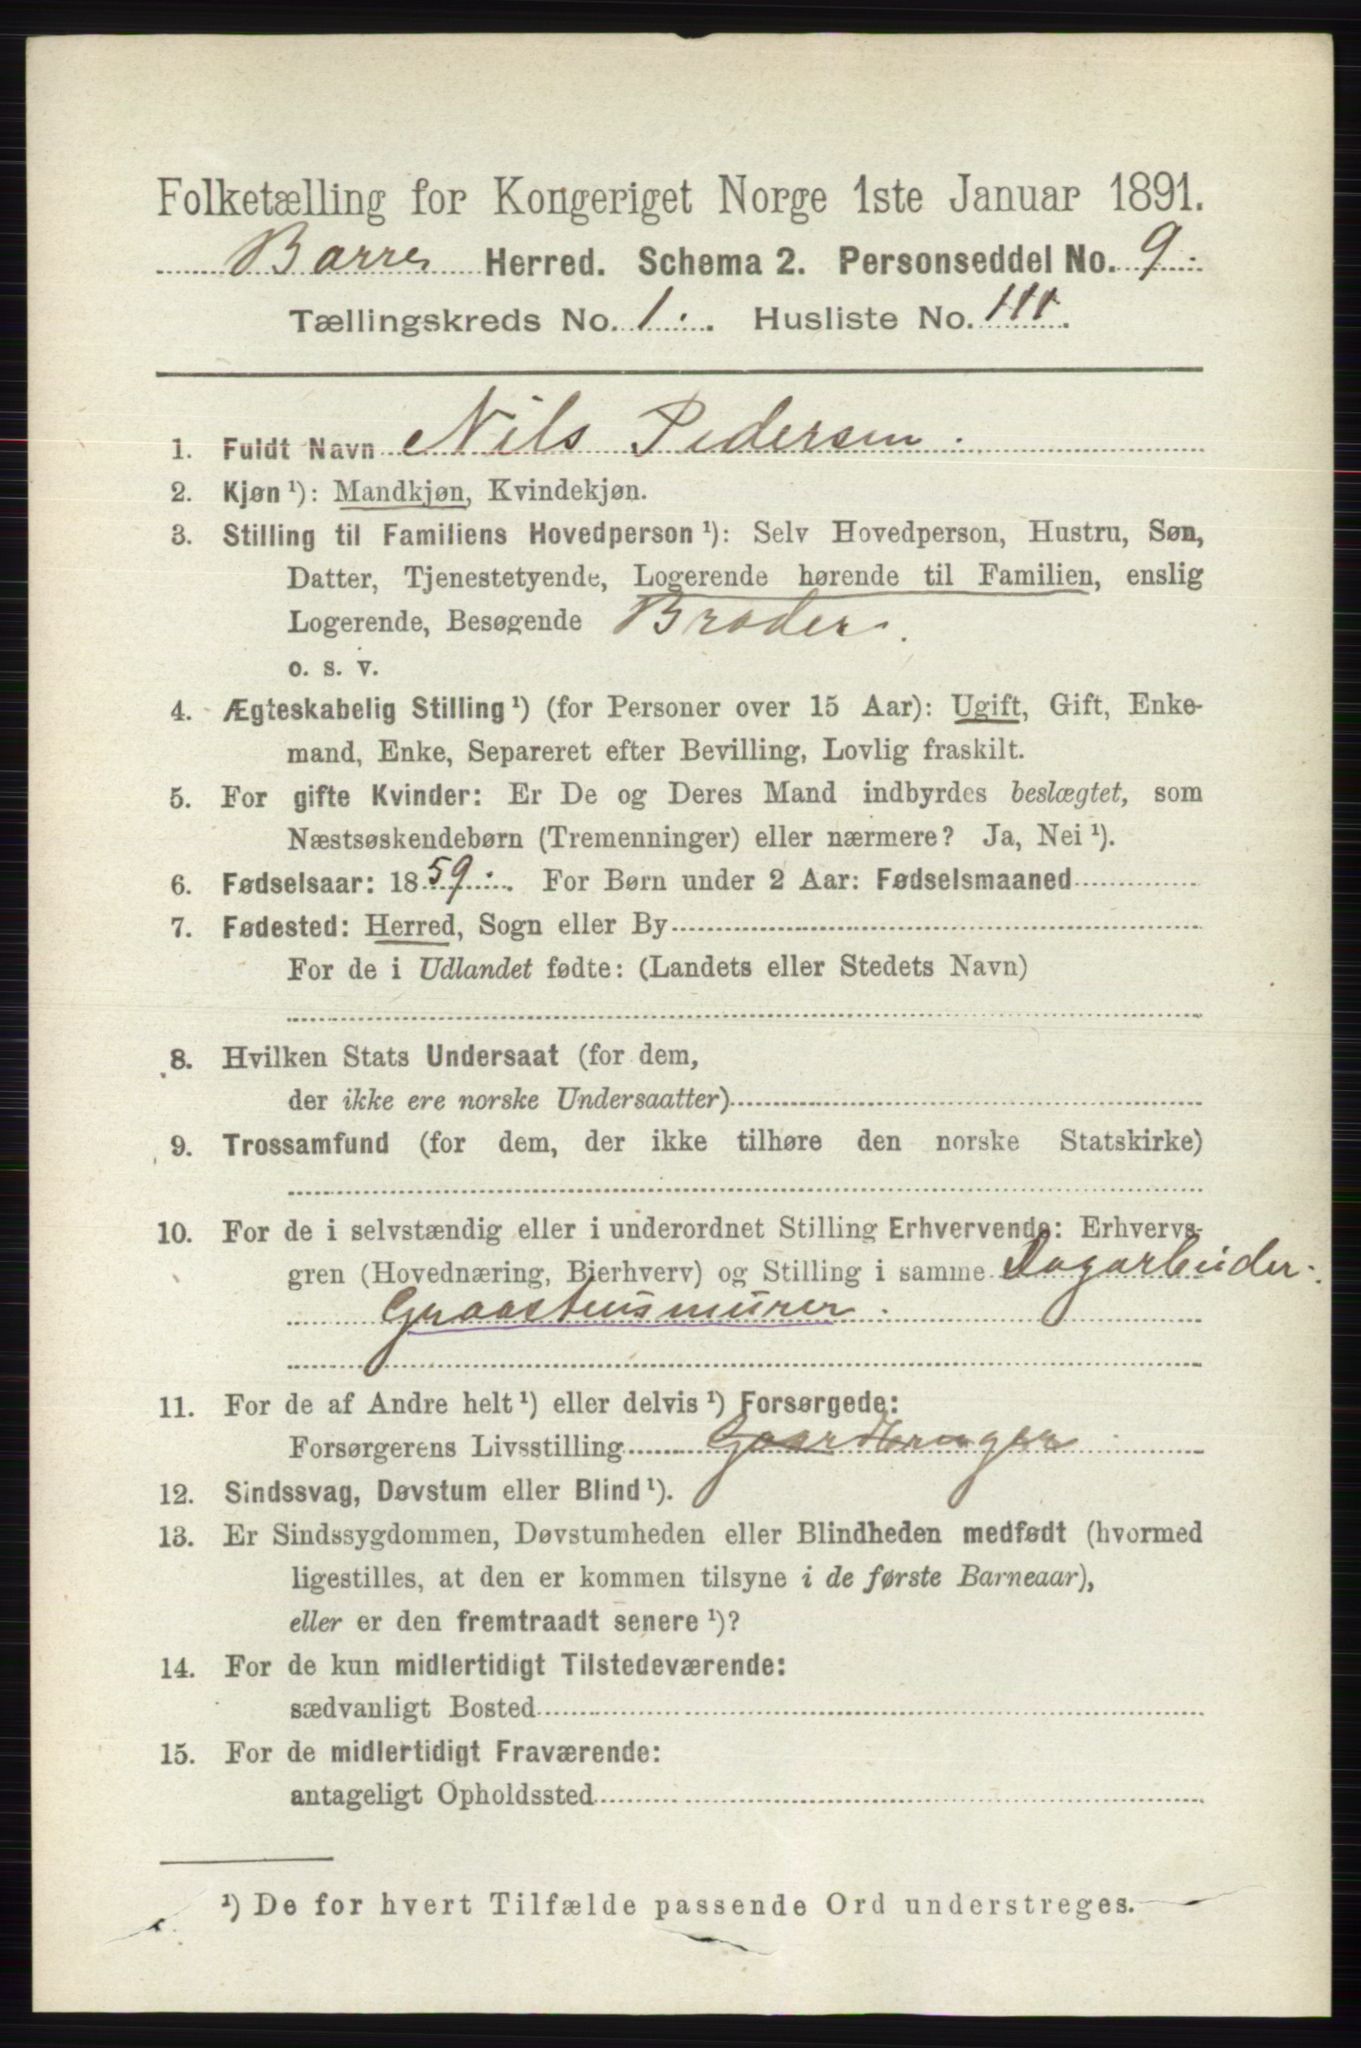 Folketælling for Kongeriget Norge 1ste Januar 1891.
Borre Herred. Schema 2. Personseddel No. 9.
Tællingskreds No. 1. Husliste No. 111.
1. Fuldt Navn Nils Pedersen.
2. Kjøn ¹): Mandkjøn, Kvindekjøn.
3. Stilling til Familiens Hovedperson ¹): Selv Hovedperson, Hustru, Søn,
Datter, Tjenestetyende, Logerende hørende til Familien, enslig
Logerende, Besøgende Broder.
o. s. v.
4. Ægteskabelig Stilling ¹) (for Personer over 15 Aar): Ugift, Gift, Enke-
mand, Enke, Separeret efter Bevilling, Lovlig fraskilt.
5. For gifte Kvinder: Er De og Deres Mand indbyrdes beslægtet, som
Næstsøskendebørn (Tremenninger) eller nærmere? Ja, Nei ¹).
6. Fødselsaar: 1859. For Børn under 2 Aar: Fødselsmaaned
7. Fødested: Herred, Sogn eller By
For de i Udlandet fødte: (Landets eller Stedets Navn)
8. Hvilken Stats Undersaat (for dem,
der ikke ere norske Undersaatter)
9. Trossamfund (for dem, der ikke tilhøre den norske Statskirke)
10. For de i selvstændig eller i underordnet Stilling Erhvervende: Erhvervs-
gren (Hovednæring, Bierhverv) og Stilling i samme Dagarbeider.
Graastensmurer.
11. For de af Andre helt ¹) eller delvis ¹) Forsørgede:
Forsørgerens Livsstilling Gaardbruger
12. Sindssvag, Døvstum eller Blind ¹).
13. Er Sindssygdommen, Døvstumheden eller Blindheden medfødt (hvormed
ligestilles, at den er kommen tilsyne i de første Barneaar),
eller er den fremtraadt senere ¹)?
14. For de kun midlertidigt Tilstedeværende:
sædvanligt Bosted
15. For de midlertidigt Fraværende:
antageligt Opholdssted
¹) De for hvert Tilfælde passende Ord understreges.